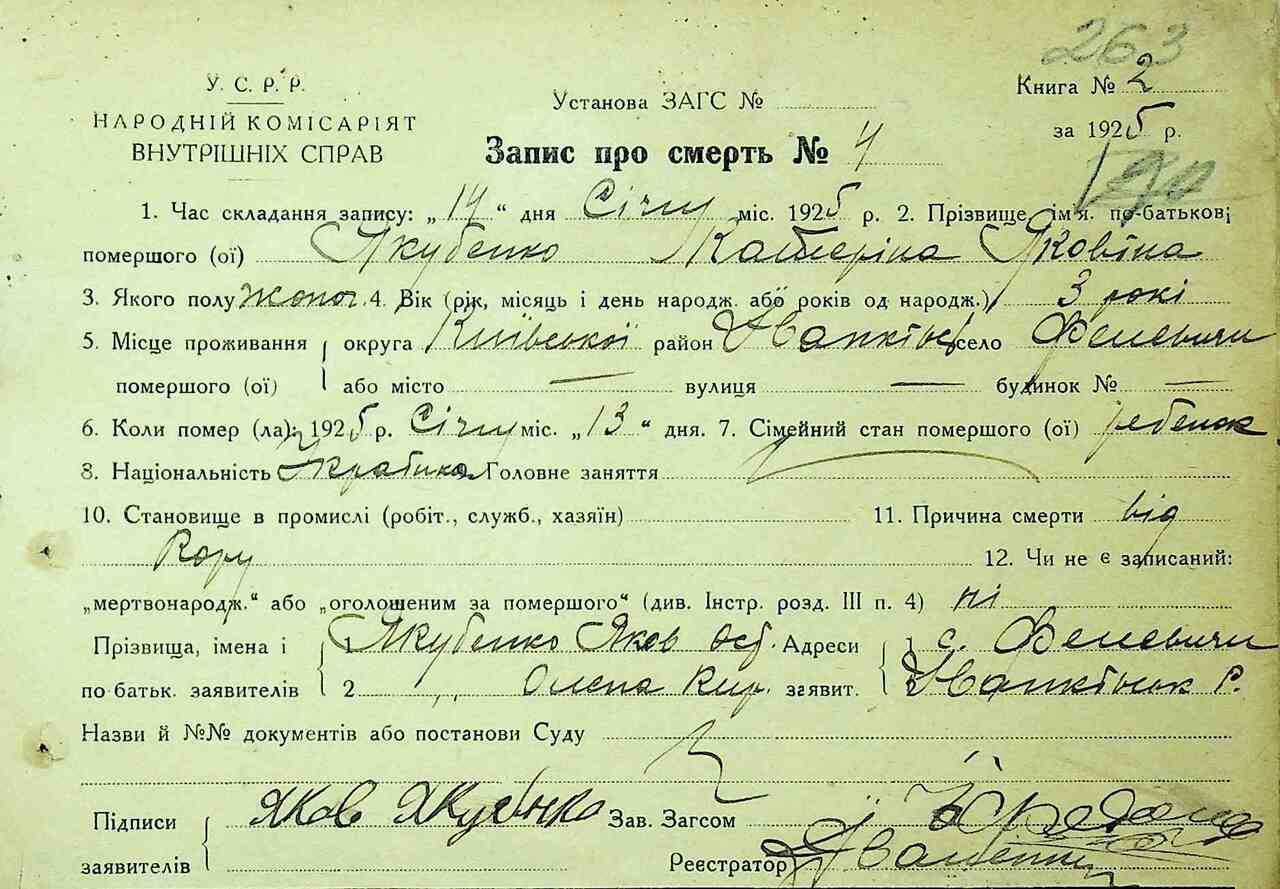 263
У. С. Р. Р.
НАРОДНІЙ КОМІСАРІЯТ
ВНУТРІШНІХ СПРАВ
Установа ЗАГС №
Книга № 2
за 1925 р.
90
Запис про смерть № 4
1. Час складання запису: „14“ дня Січну міс. 1925 р. 2. Прізвище, ім'я, по-батькові
помершого (ої) Якубенко Катеріна Яковіна
3. Якого полу жоноч. 4. Вік (рік, місяць і день народж. або років од народж.) 3 рокі
5. Місце проживання округа Київської район Іванківськ село Феневичи
помершого (ої) або місто — вулиця — будинок № —
6. Коли помер (ла): 1925 р. Січну міс. „13“ дня. 7. Сімейний стан помершого (ої) ребенок
8. Національність Українка Головне заняття
10. Становище в промислі (робіт., служб., хазяїн) 11. Причина смерти від
Кору 12. Чи не є записаний:
„мертвонародж.“ або „оголошеним за помершого“ (див. Інстр. розд. III п. 4) ні
Прізвища, імена і 1 Якубенко Яков Осіф. Адреси 1 с. Феневичи
по батьк. заявителів 2 „ Олена Кир. заявит. 2 Іванківськ Р.
Назви й №№ документів або постанови Суду
Підписи Яков Якубенко Зав. Загсом
заявителів Реєстратор